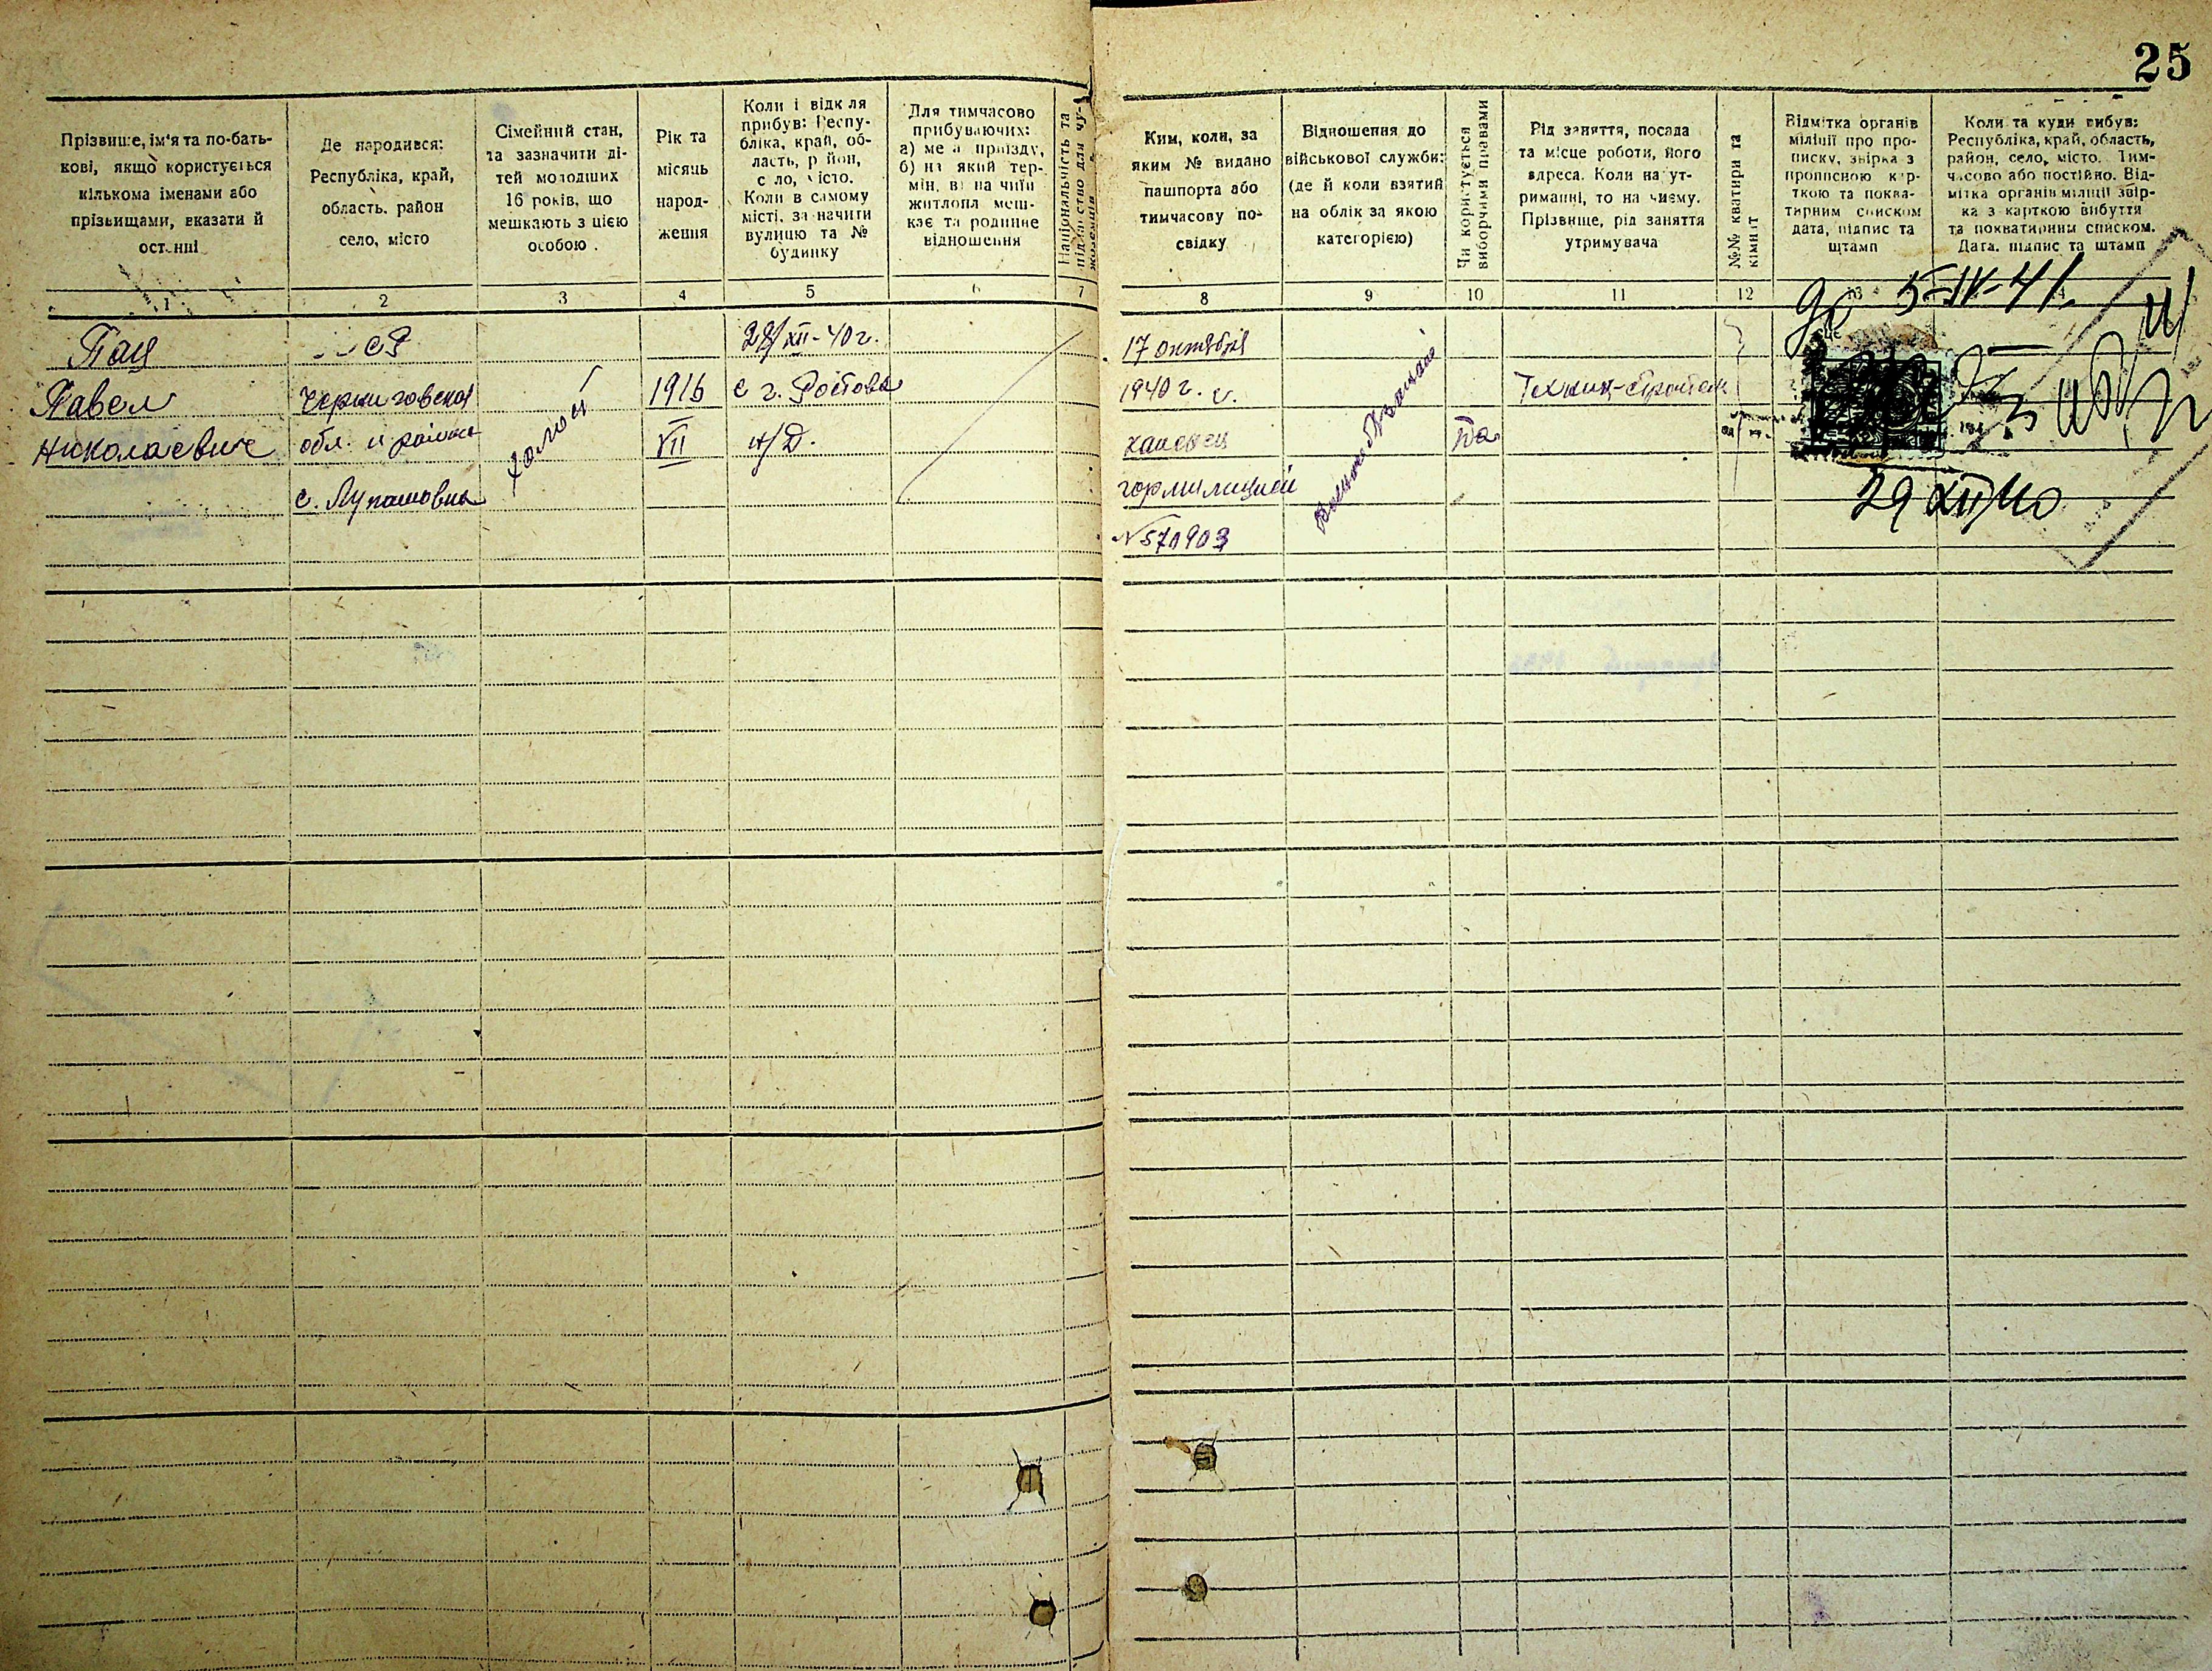 25
Прізвище, ім'я та по-бать-
кові, якщо користується
кількома іменами або
прізвищами, вказати й
останні
Де народився:
Республіка, край,
область, район
село, місто
Сімейний стан,
та зазначити ді-
тей молодших
16 років, що
мешкають з цією
особою.
Рік та
місяць
народ-
ження
Коли і відкля
прибув: Респу-
бліка, край, об-
ласть, район,
село, місто.
Коли в самому
місті, зазначити
вулицю та №
будинку
Для тимчасово
прибуваючих:
а) мета приїзду,
б) на який тер-
мін, в) на чиїй
житлопл меш-
кає та родинне
відношення
Національність та
підданство для чу-
жоземців
Ким, коли, за
яким № видано
пашпорта або
тимчасову по-
свідку
Відношення до
військової служби:
(де й коли взятий
на облік за якою
категорією)
Чи користується
виборчими правами
Рід заняття, посада
та місце роботи, його
адреса. Коли на ут-
риманні, то на чиєму.
Прізвище, рід заняття
утримувача
№№ кватири та
кімнат
Відмітка органів
міліції про про-
писку, звірка з
прописною кар-
ткою та поква-
тирним списком
дата, підпис та
штамп
Коли та куди вибув:
Республіка, край, область,
район, село, місто. Тим-
часово або постійно. Від-
мітка органів міліції звір-
ка з карткою вибуття
та покватирним списком.
Дата, підпис та штамп
1 2 3 4 5 6 7 8 9 10 11 12 13
до 5-IV-41.
Пац
28/XII-40 г.
17 октября
Павел
Черниговская
1916
с г. Ростова
1940 г.
Техник-строитель
Николаевич
обл. и района
холост
VII
н/Д.
да
с. Лупашовка
гормилицией
№ 571903
29 XII/40